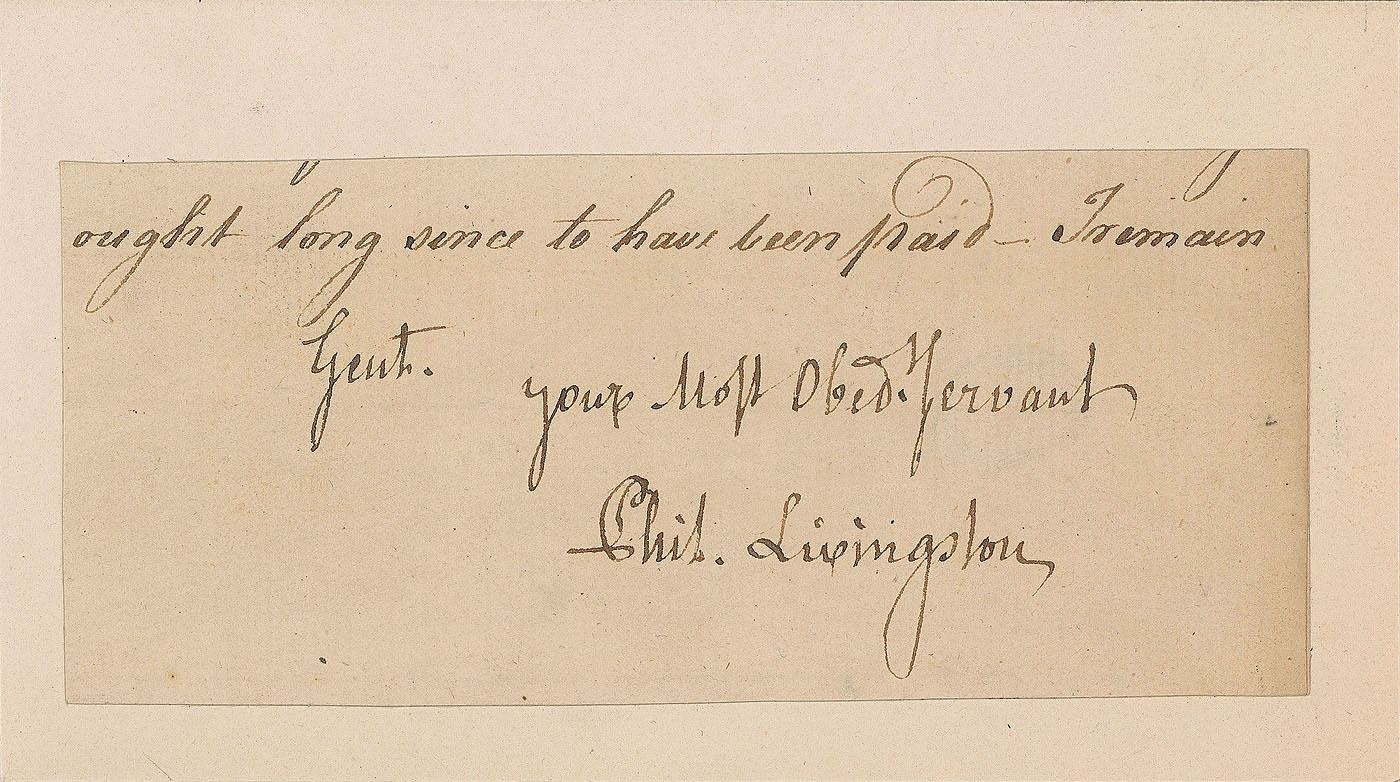 ought long since to have been paid – I remain
Gent.
your Most Obed. Servant
Phil. Livingston